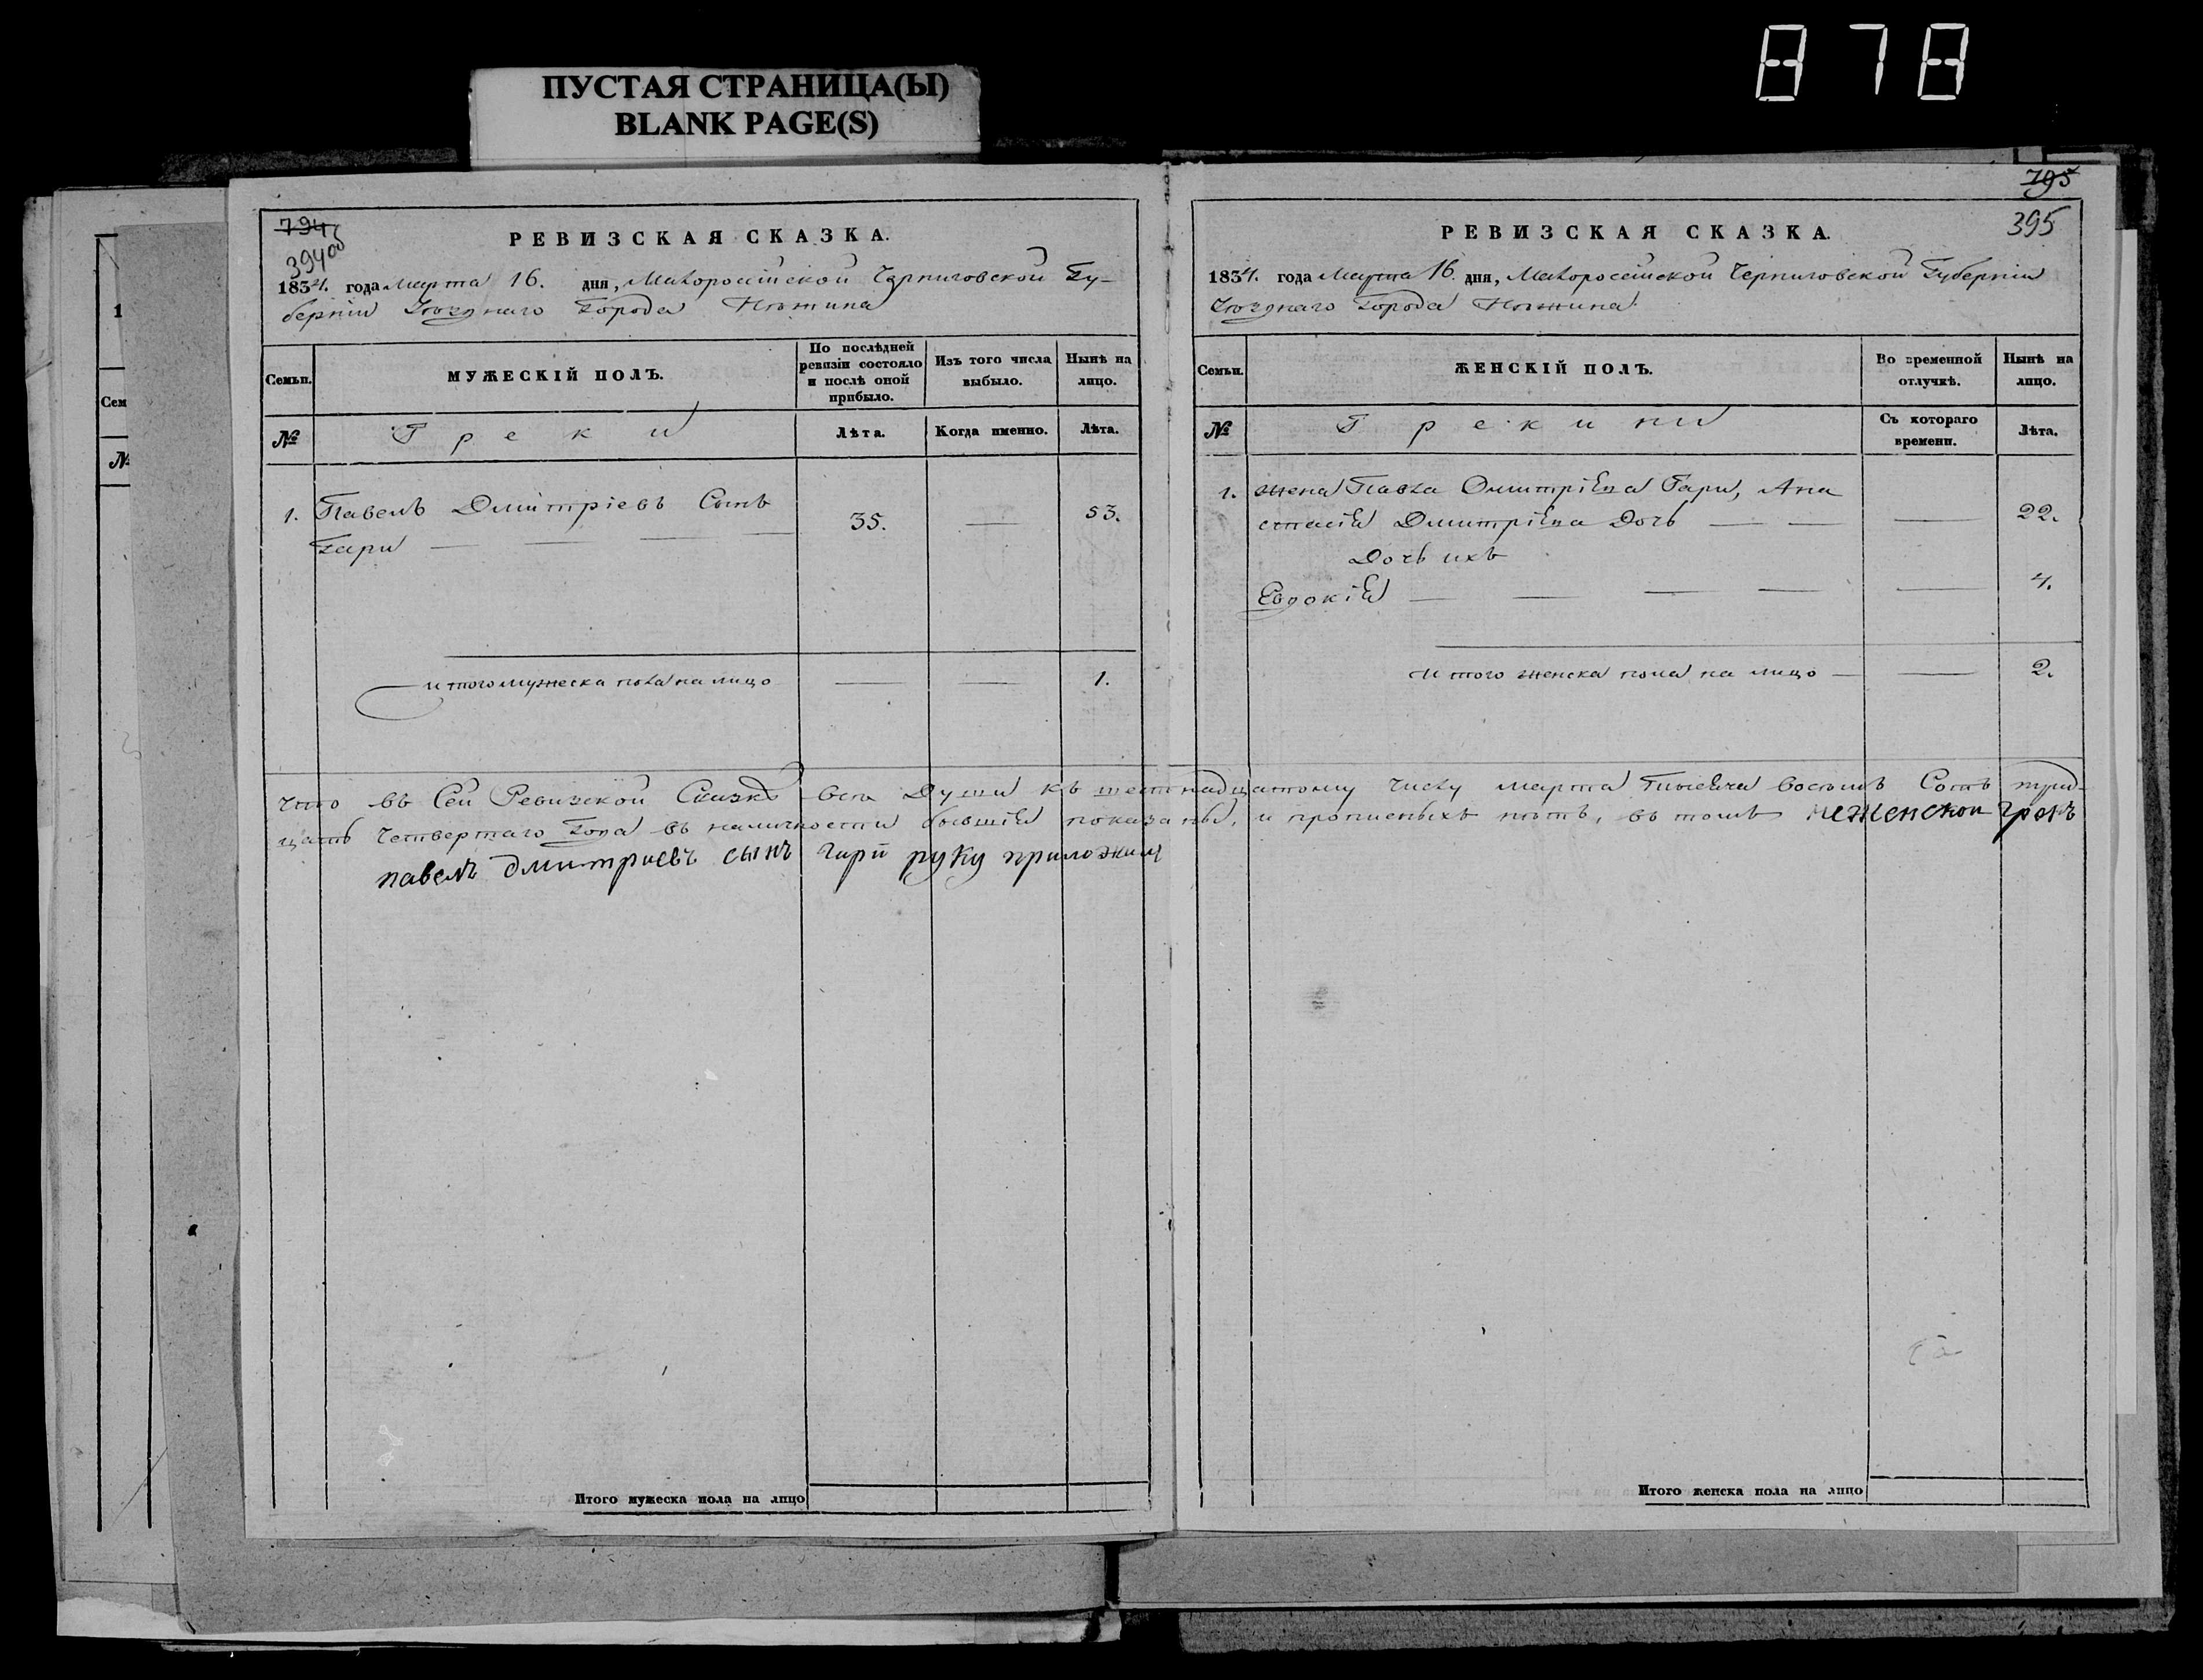 878
ПУСТАЯ СТРАНИЦА(Ы)
BLANK PAGE(S)
794
394 об
РЕВИЗСКАЯ СКАЗКА.
1834. года Марта 16. дня, Малоросійской Черниговской Гу-
берніи Уезднаго Города Нѣжина
Семьи.
МУЖЕСКІЙ ПОЛЪ.
По послѣдней ревизіи состояло и послѣ оной прибыло.
Изъ того числа выбыло.
Нынѣ на лицо.
№
Греки
Лѣта.
Когда именно.
Лѣта.
1. Павелъ Дмитріевъ Сынъ
Гари — — — — 35. — 53.
итого мужеска пола на лицо — — 1.
795
395
РЕВИЗСКАЯ СКАЗКА.
1834. года Марта 16. дня, Малоросейской Черниговской Губерніи
Уезднаго Города Нѣжина
Семьи.
ЖЕНСКІЙ ПОЛЪ.
Во временной отлучкѣ.
Нынѣ на лицо.
№
Грекини
Съ котораго времени.
Лѣта.
1. жена Павла Дмитріева Гари, Ана
стасія Дмитріева Дочь — — — 22.
Дочь ихъ
Евдокія — — — — — 4.
И того женска пола на лицо — — 2.
что въ Сей Ревизской Сказкѣ всѣ Души къ шестнадцатому числу марта тысеча восемъ Сотъ трид-
цать четвертаго Года въ наличности бывшія показаны, и прописныхъ нѣтъ, въ томъ неженской грекъ
павелъ дмитриевъ сынъ гари руку приложилъ
Итого мужеска пола на лицо
Итого женска пола на лицо
1
Сем
№